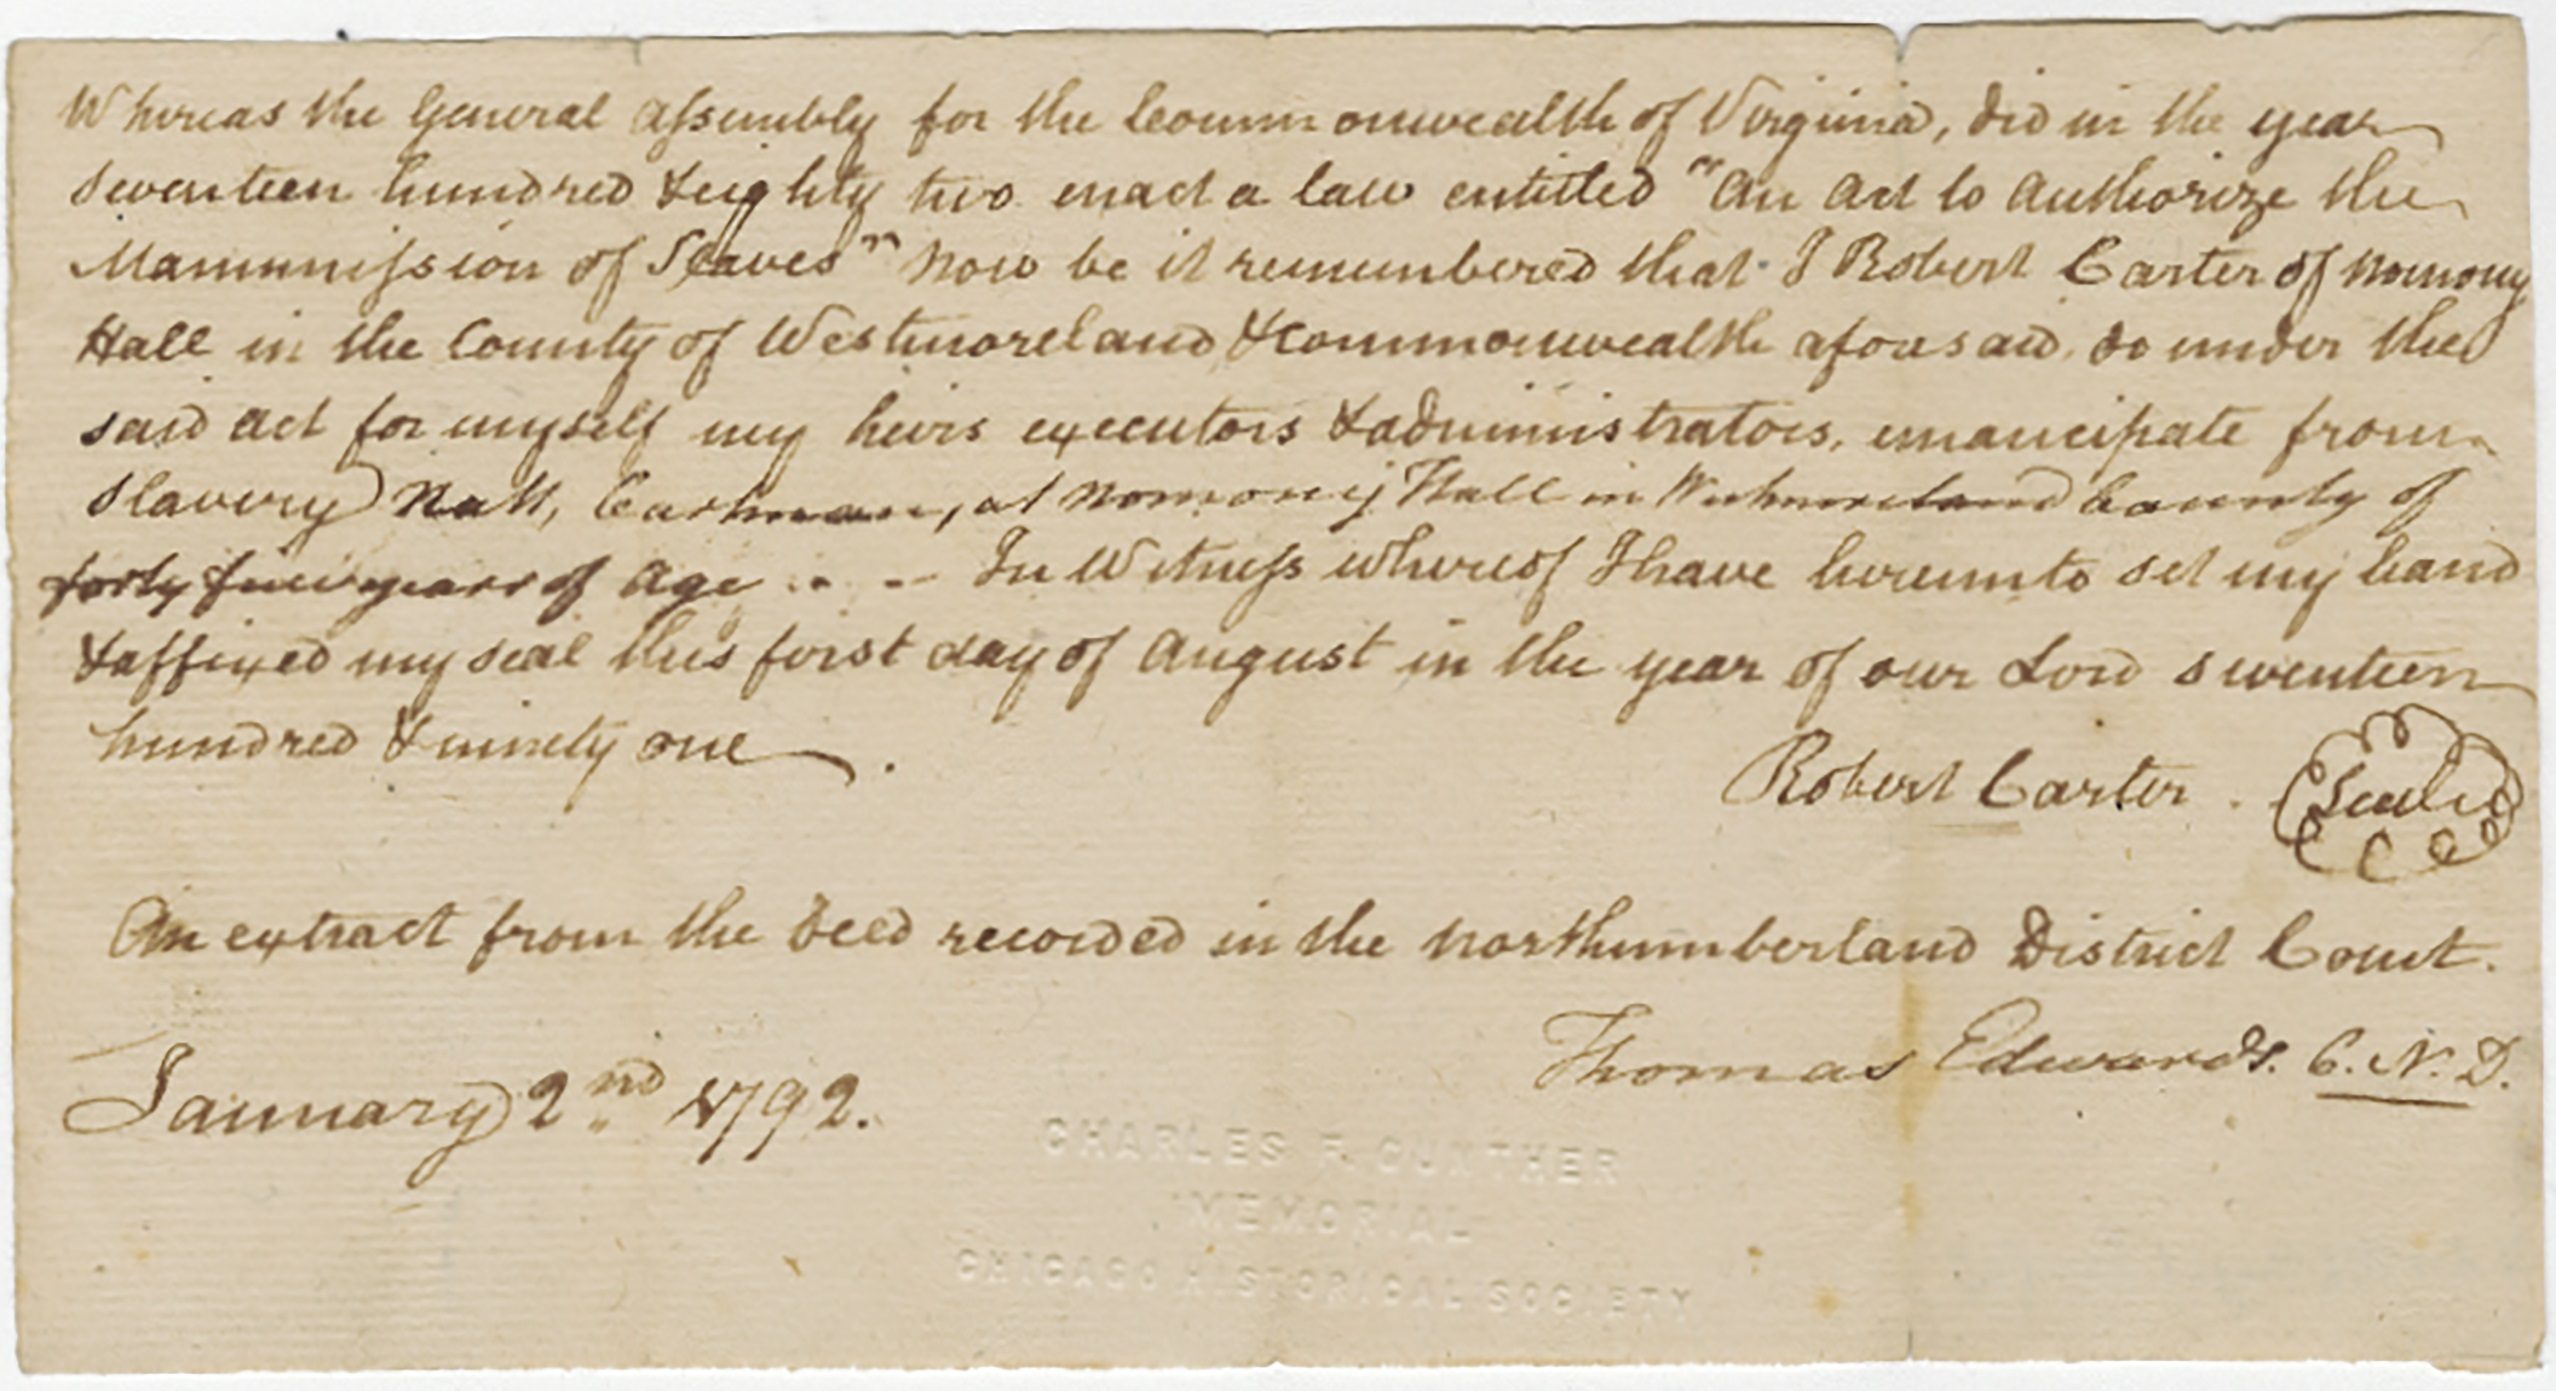 Whereas the General Assembly for the Commonwealth of Virginia, did in the year
seventeen hundred & eighty two enact a law entitled "An Act to Authorize the
Manumission of Slaves" Now be it remembered that I Robert Carter of Nomony
Hall in the County of Westmoreland & Commonwealth aforesaid, do under the
said Act for myself my heirs executors & administrators, emancipate from
Slavery Natt, Cartman, at Nomony Hall in Westmoreland County of
forty five years of Age . . - In Witness whereof I have hereunto set my hand
& affixed my seal this first day of August in the year of our Lord seventeen
hundred & ninety one.
Robert Carter. Seal
An extract from the deed recorded in the Northumberland District Court.
Thomas Edwards. C. N. D.
January 2nd 1792.
CHARLES F. GUNTHER
MEMORIAL
CHICAGO HISTORICAL SOCIETY